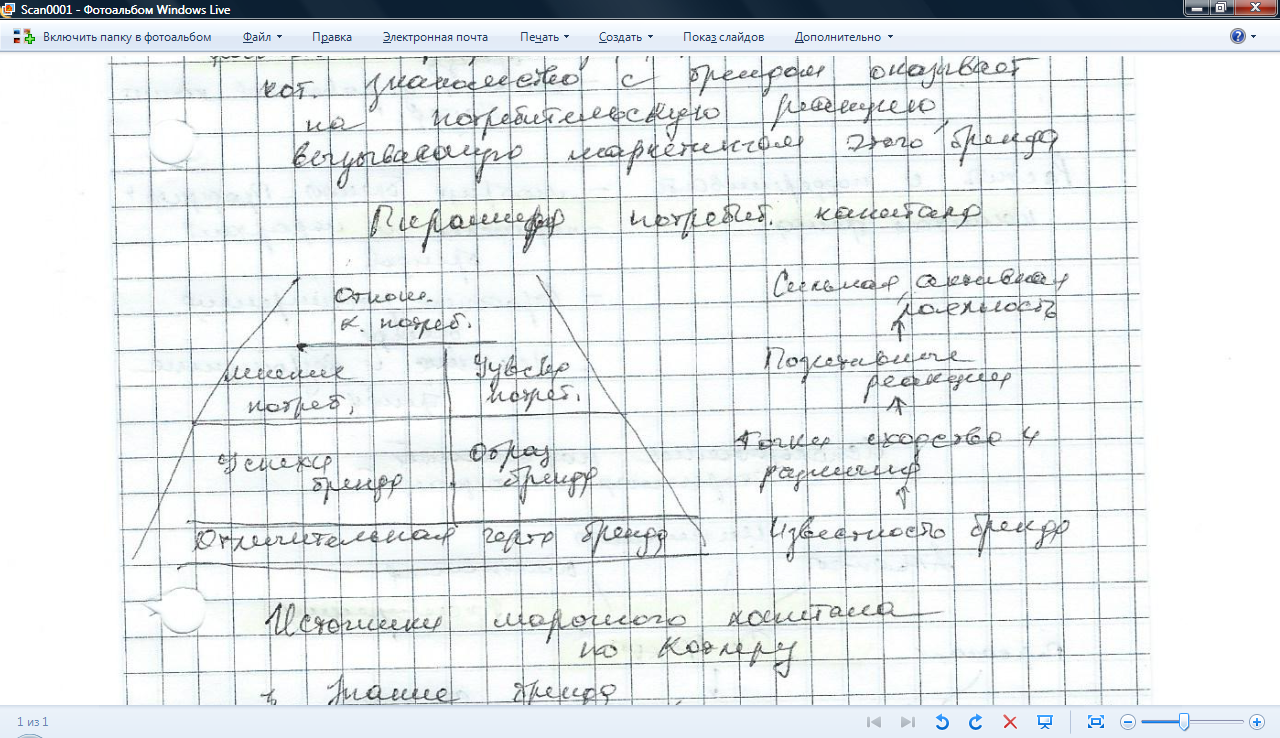 Scan0001 - Фотоальбом Windows Live
Включить папку в фотоальбом Файл Правка Электронная почта Печать Создать Показ слайдов Дополнительно
кот. знакомство с брендом оказывает
на потребительскую реакцию,
вызывавшую маркетингом этого бренда
Пирамида потребит. капитала
Отнош.
к. потреб.
Сильная, активная
лояльность
Мнение
потреб.
Чувство
потреб.
Позитивные
реакции
Успехи
бренда
Образ
бренда
точки сходства и
различия
Отличительная черта бренда
Известность бренда
Источники марочного капитала
по Котлеру
Знание бренда
1 из 1